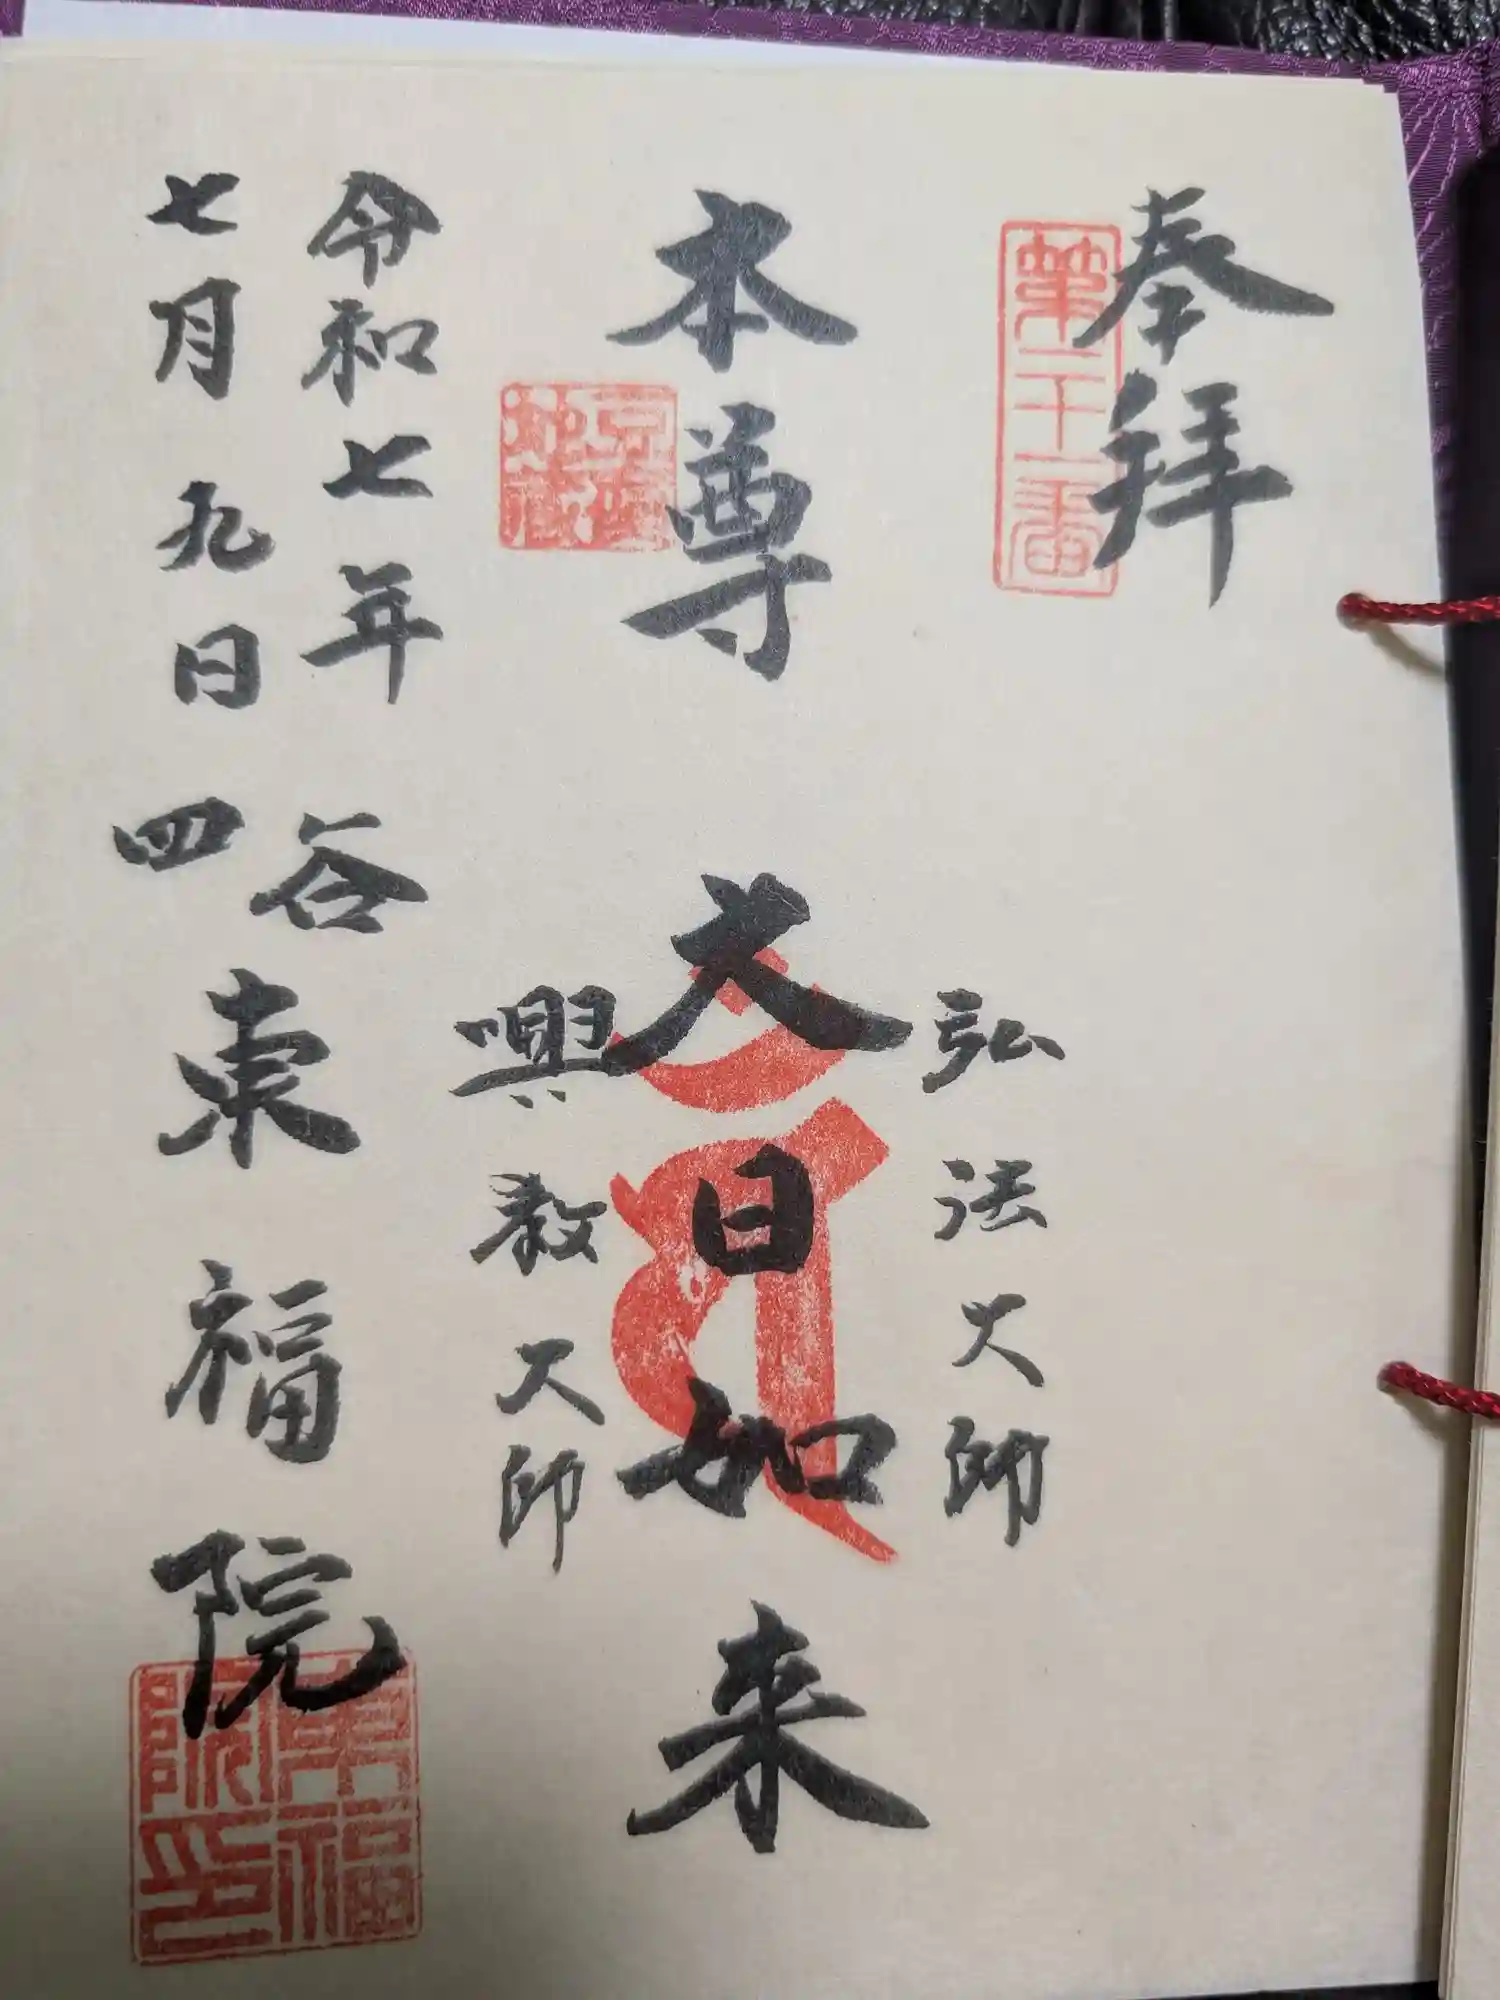 奉拝
第二十一番
弘法大師
本尊　大日如来
興教大師
令和七年
七月九日
四谷
東福院
東福院印